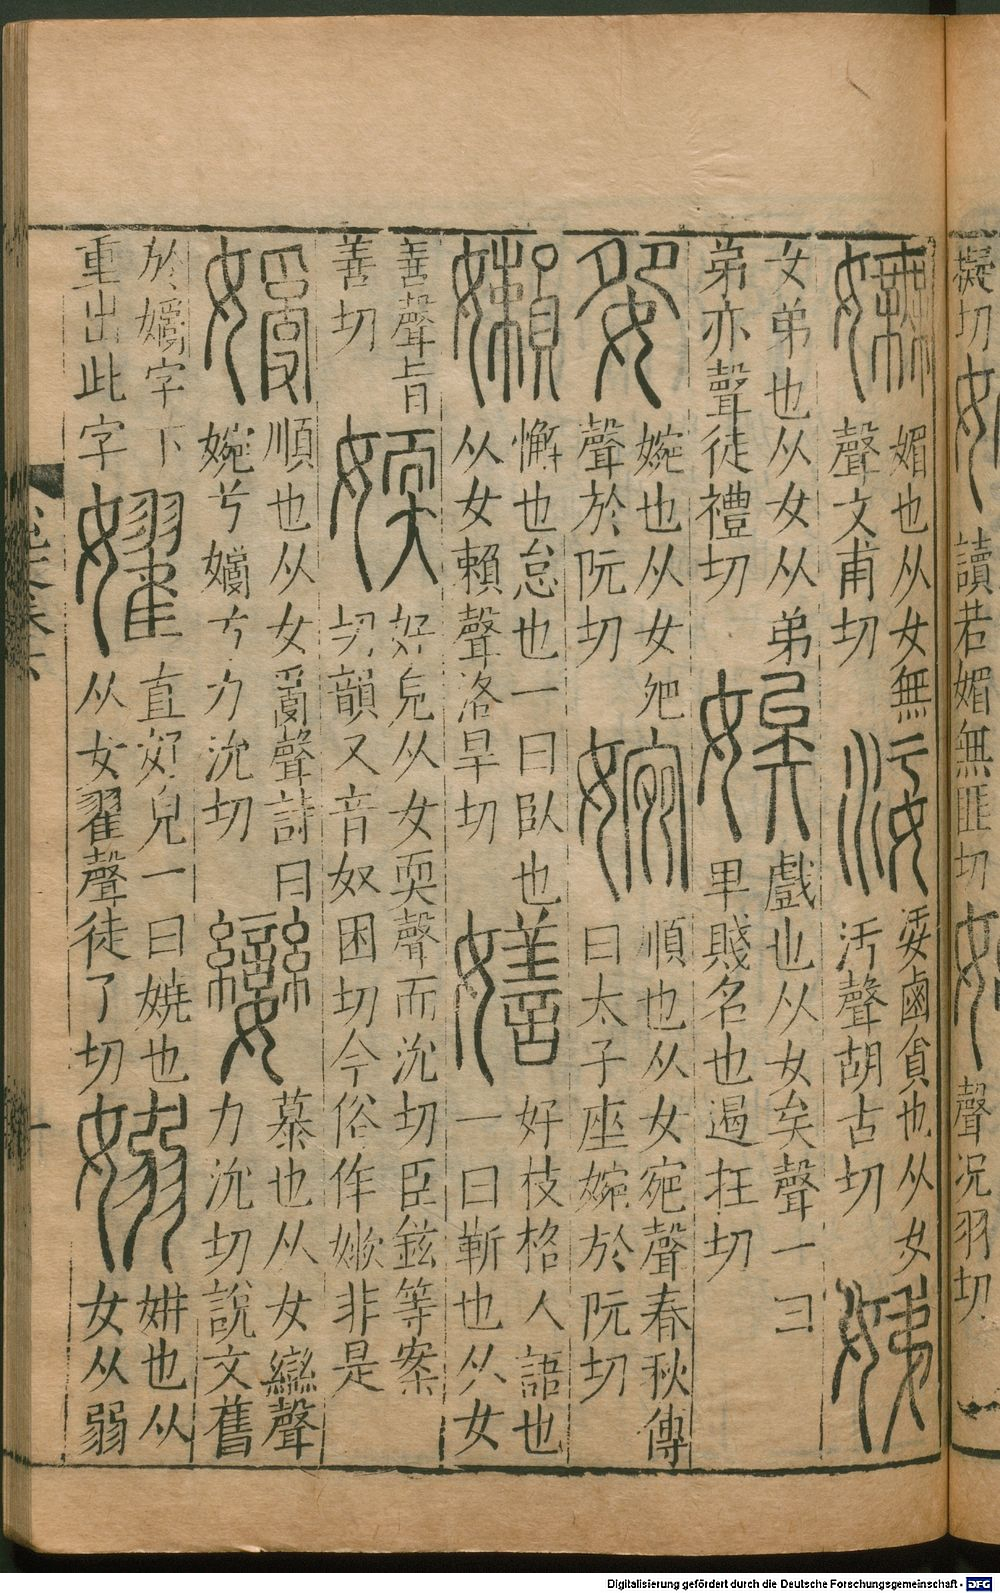 擬切
讀若媚無匪切
聲況羽切
嫵
媚也从女無
聲文甫切
鹵貪也从女
汙聲胡古切
娣
女弟也从女从弟
弟亦聲徒禮切
娭
戲也从女矣聲一曰
卑賤名也遏在切
㚹
婉也从女夗
聲於阮切
婉
順也从女宛聲春秋傳
曰太子座婉於阮切
嬾
懈也怠也一曰臥也
从女賴聲洛旱切
嫸
好枝格人語也
一曰靳也从女
善聲旨
善切
媆
好皃从女耎聲而沇切臣鉉等案
切韻又音奴困切今俗作嫩非是
𡡗
順也从女𤔔聲詩曰
婉兮𡡗兮力沇切
孌
慕也从女䜌聲
力沇切說文舊
於𡡗字下
重出此字
嬥
直好皃一曰嬈也
从女翟聲徒了切
嫋
姌也从
女从弱
Digitalisierung gefördert durch die Deutsche Forschungsgemeinschaft - DFG